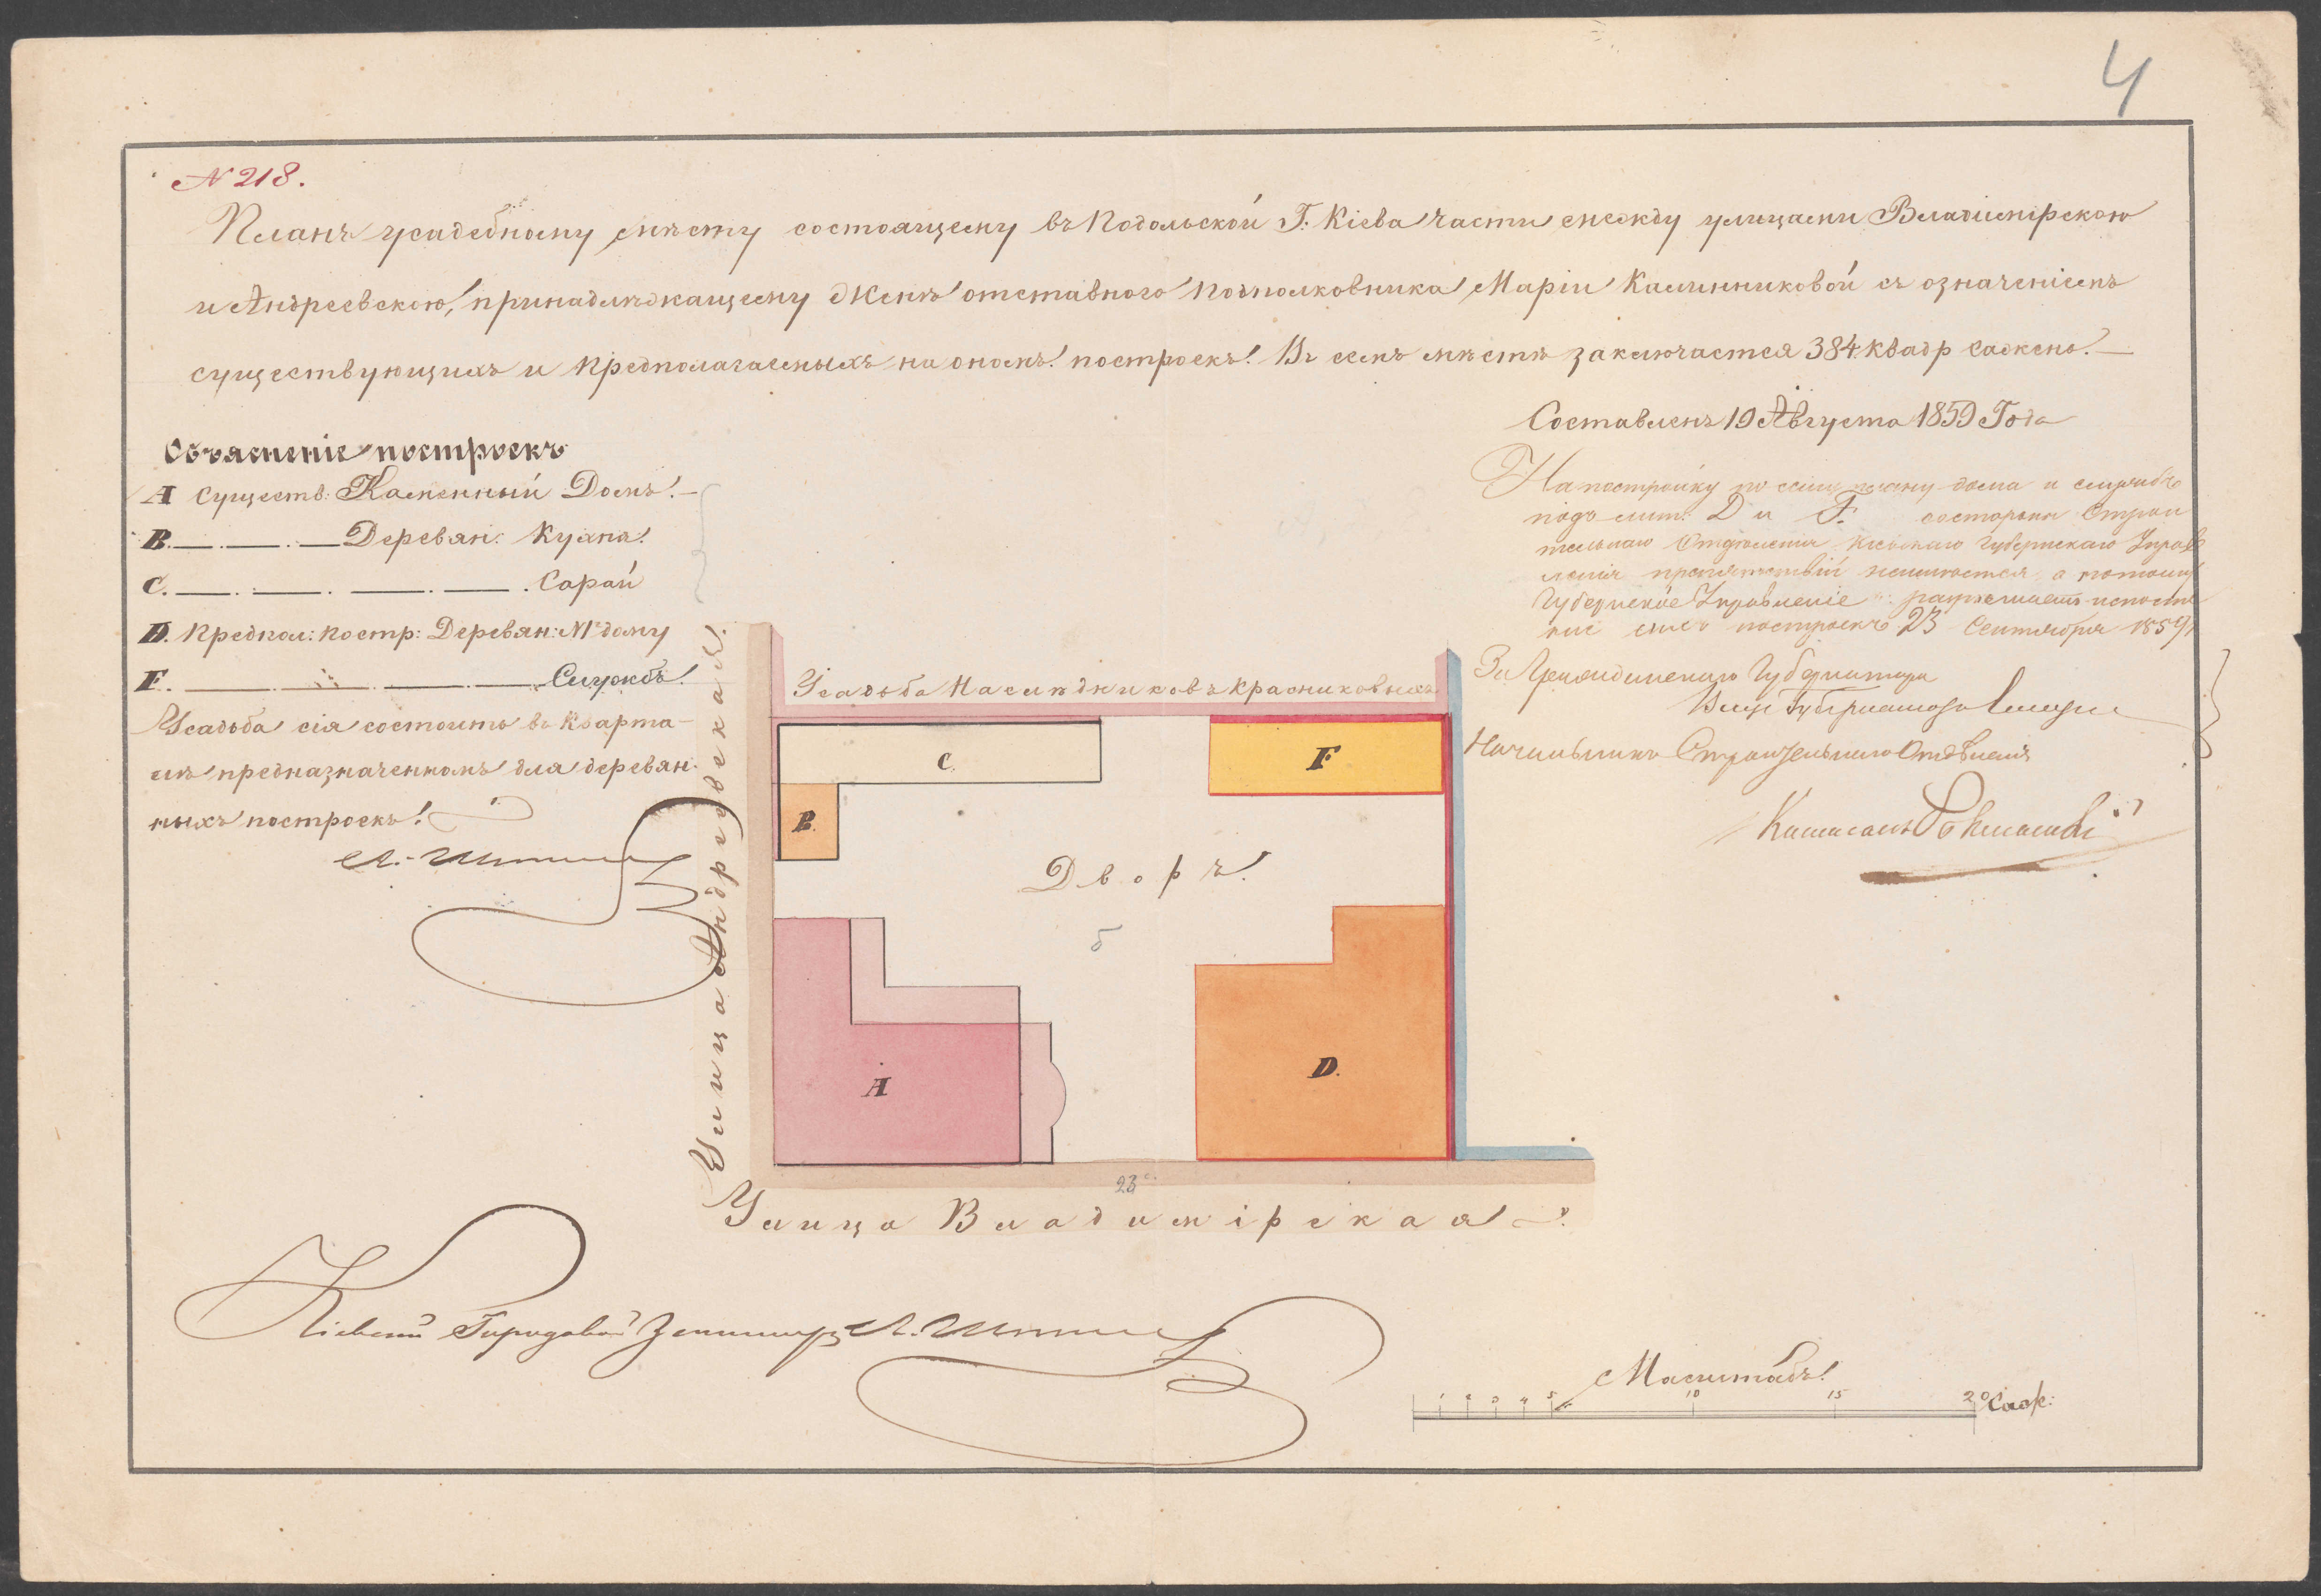 4
N 218.
Планъ усадебному мѣсту состоящему въ Подольской Г. Кіева части между улицами Владимірскою
и Андреевскою, принадлѣжащему Женѣ отставного подполковника Маріи Калинниковой съ означеніемъ
существующихъ и предполагаемыхъ на ономъ построекъ. Въ семъ мѣстѣ заключается 384 квадр сажень.—
Составленъ 19 Августа 1859 Года
Объясненіе построекъ
А Существ: Каменный Домъ.—
В. —.—.— Деревян: Кухня.
С. —.—.—.—. Сарай
D. Предпол: постр: Деревян: №1 дому
F. —.—.—.— Службъ.
Усадьба сія состоитъ въ Кварта-
лѣ предназначенномъ для деревян-
ныхъ построекъ.
На постройку по сему плану дома и службъ
подъ лит. D и F. со стороны Строи
тельнаго Отдѣленія Кіевскаго Губернскаго Управ
ленія препятствій неимѣется, а потому
Губернское Управленіе разрѣшаетъ
построекъ 23 Сентября 1859
За Гражданскаго Губернатора
Вице Губернаторъ
Начальникъ Строительнаго Отдѣленія
Усадьба Наслѣдниковъ Красниковыхъ
С.
F
В.
Дворъ.
б
А
D.
Улица Андреевская.
23 с.
Улица Владимірская
Кіевскій Городовой Землемѣръ
Масштабъ.
1 2 3 4 5 10 15 20 Саж: